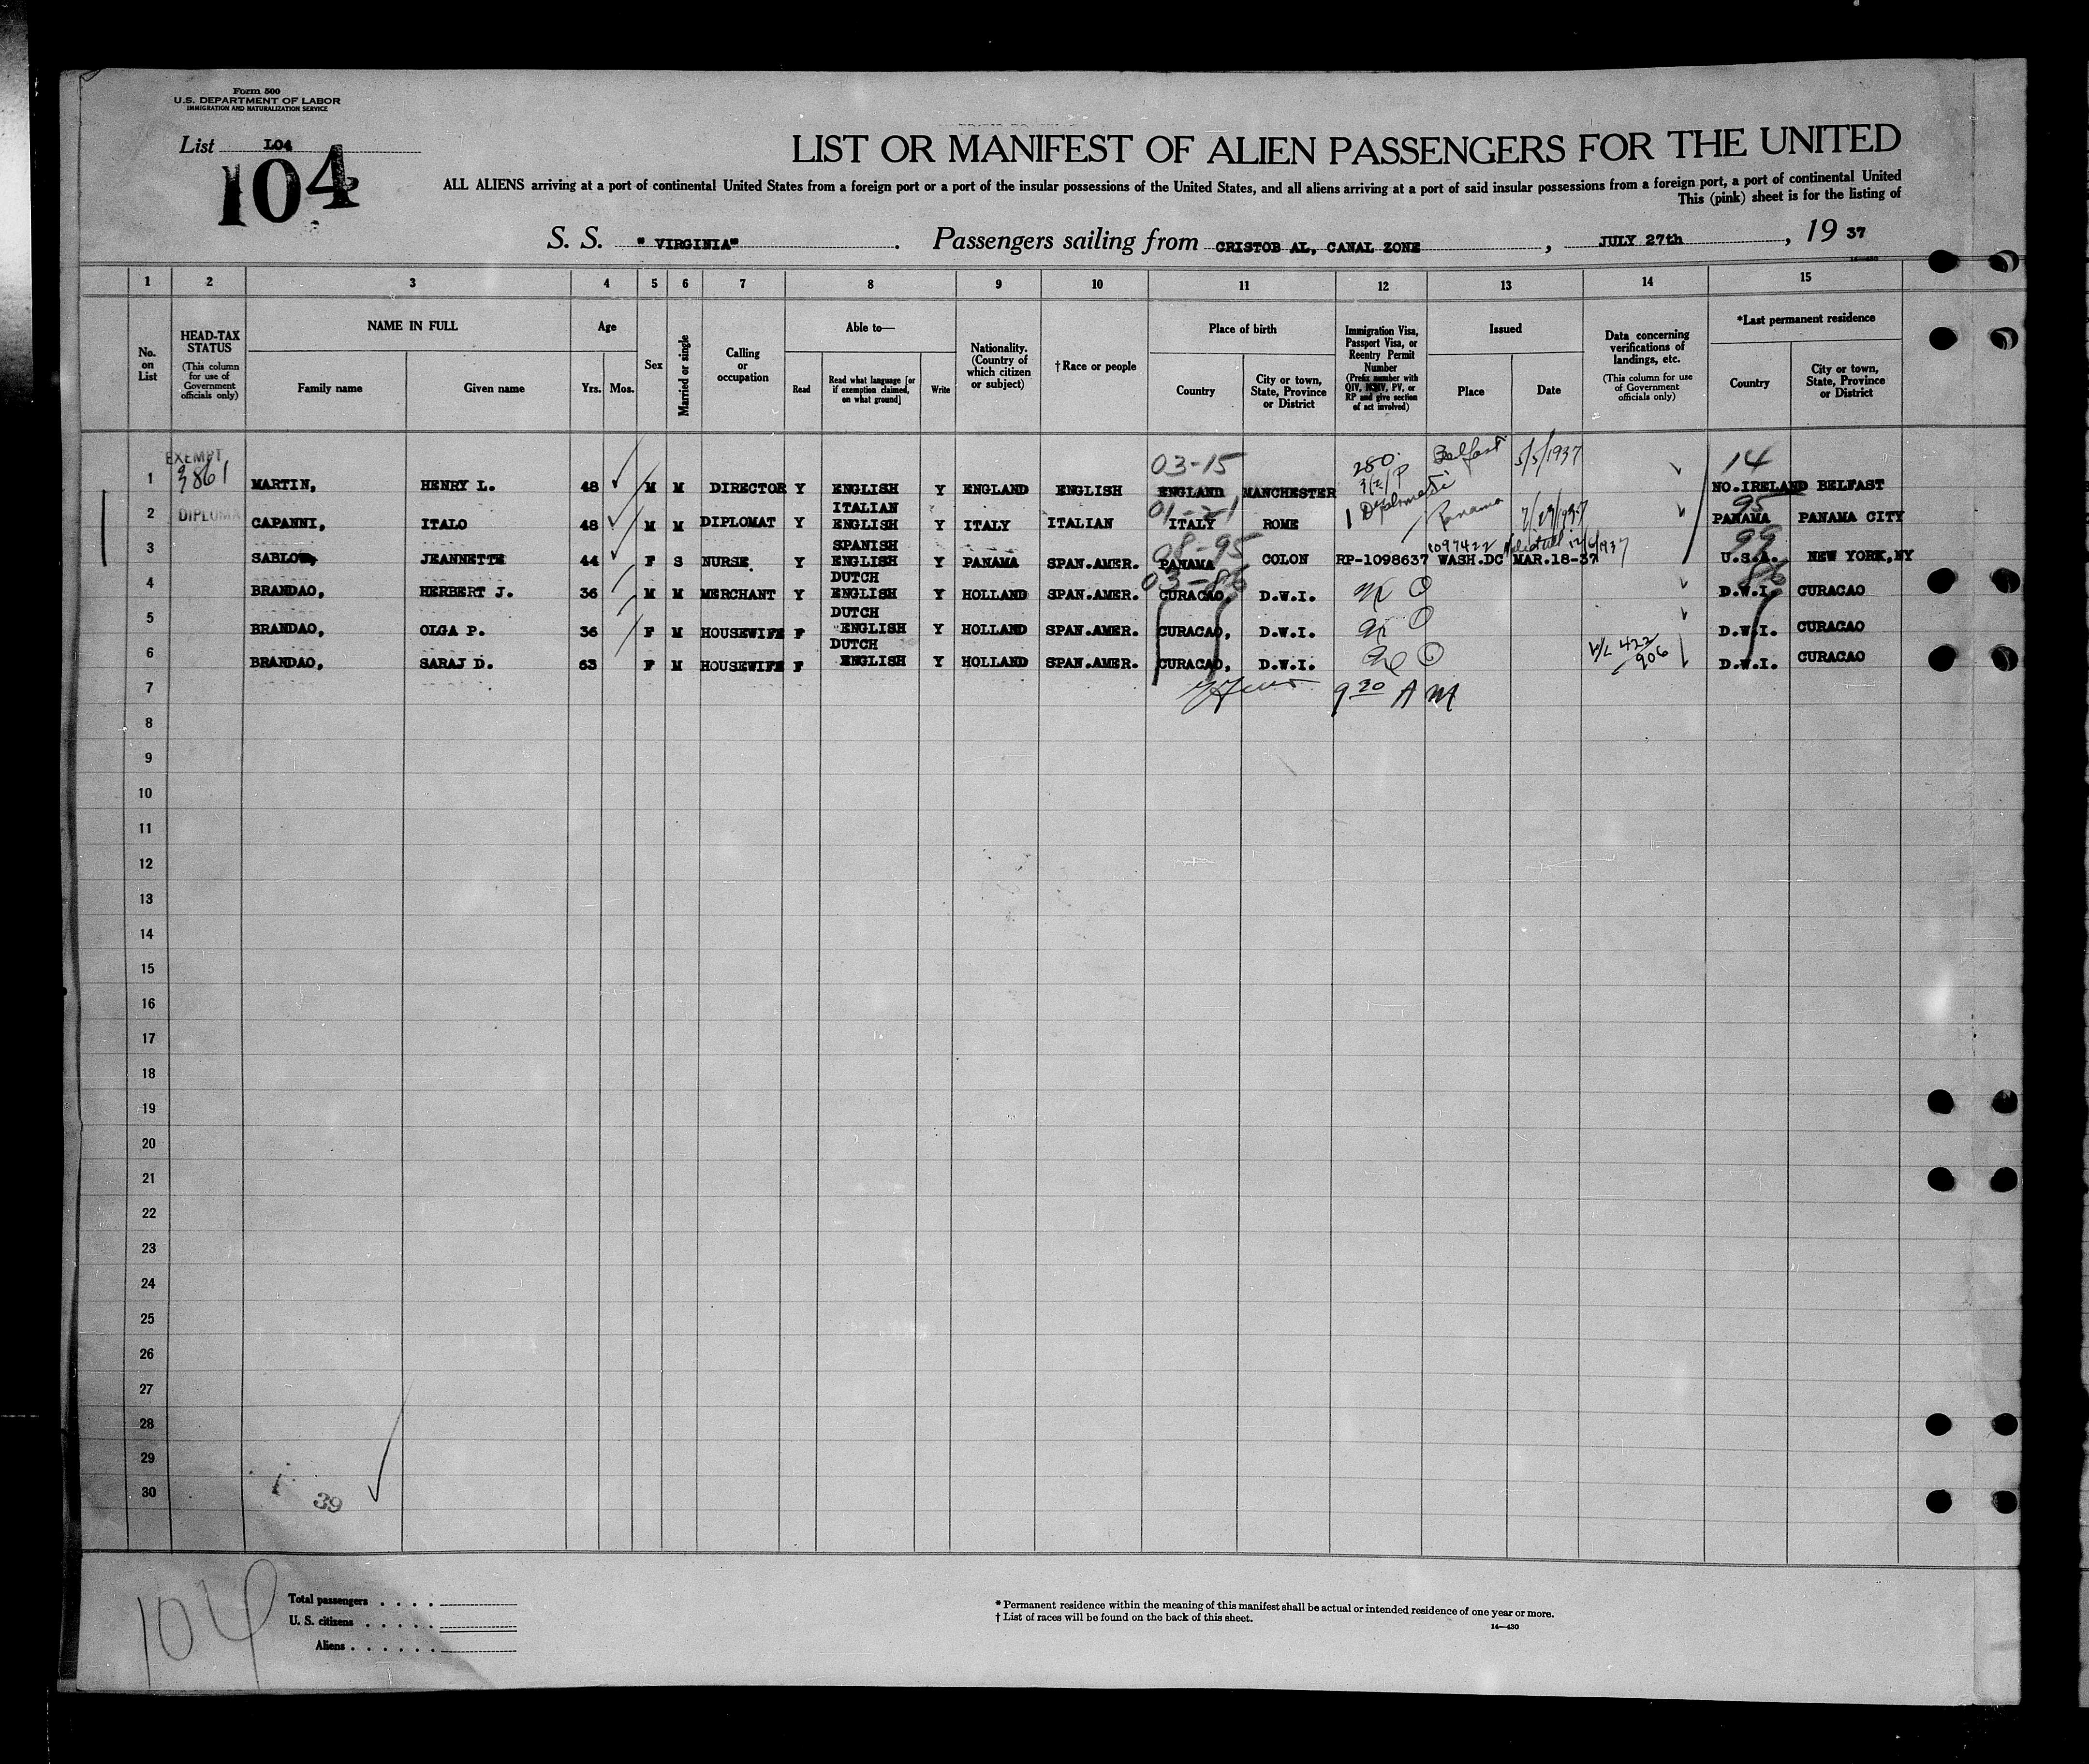 Form 500
U.S. DEPARTMENT OF LABOR
IMMIGRATION AND NATURALIZATION SERVICE
List 104
104
LIST OR MANIFEST OF ALIEN PASSENGERS FOR THE UNITED
ALL ALIENS arriving at a port of continental United States from a foreign port or a port of the insular possessions of the United States, and all aliens arriving at a port of said insular possessions from a foreign port, a port of continental United
This (pink) sheet is for the listing of
S. S. " VIRGINIA" . Passengers sailing from CRISTOB AL, CANAL ZONE , JULY 27th , 19 37
14—430
1 2 3 4 5 6 7 8 9 10 11 12 13 14 15
No. on List
HEAD-TAX STATUS
(This column for use of Government officials only)
NAME IN FULL
Family name Given name
Age
Yrs. Mos.
Sex
Married or single
Calling or occupation
Able to—
Read
Read what language [or if exemption claimed, on what ground]
Write
Nationality. (Country of which citizen or subject)
†Race or people
Place of birth
Country
City or town, State, Province or District
Immigration Visa, Passport Visa, or Reentry Permit Number
(Prefix number with QIV, NQIV, PV, or RP and give section of act involved)
Issued
Place Date
Data concerning verifications of landings, etc.
(This column for use of Government officials only)
*Last permanent residence
Country
City or town, State, Province or District
EXEMPT 03-15 280 Belfast 5/5/1937 14
3861 3(2)P
1 MARTIN, HENRY L. 48 M M DIRECTOR Y ENGLISH Y ENGLAND ENGLISH ENGLAND MANCHESTER NO.IRELAND BELFAST
DIPLOMA ITALIAN 01-21 Diplomatic Panama 95
2 CAPANNI, ITALO 48 M M DIPLOMAT Y ENGLISH Y ITALY ITALIAN ITALY ROME PANAMA PANAMA CITY
SPANISH 08-95 1097422 99
3 SABLOW, JEANNETTE 44 F S NURSE Y ENGLISH Y PANAMA SPAN.AMER. PANAMA COLON RP-1098637 WASH.DC MAR.18-37 U.S.A. NEW YORK,NY
DUTCH 03-86 86
4 BRANDAO, HERBERT J. 36 M M MERCHANT Y ENGLISH Y HOLLAND SPAN.AMER. CURACAO, D.W.I. D.W.I. CURACAO
DUTCH
5 BRANDAO, OLGA P. 36 F M HOUSEWIFE F ENGLISH Y HOLLAND SPAN.AMER. CURACAO, D.W.I. D.W.I. CURACAO
DUTCH 422
906
6 BRANDAO, SARAJ D. 63 F M HOUSEWIFE F ENGLISH Y HOLLAND SPAN.AMER. CURACAO, D.W.I. D.W.I. CURACAO
7 9 30 AM
8
9
10
11
12
13
14
15
16
17
18
19
20
21
22
23
24
25
26
27
28
29
30
39
104
Total passengers . . . .
U. S. citizens . . . . .
Aliens . . . . . .
* Permanent residence within the meaning of this manifest shall be actual or intended residence of one year or more.
† List of races will be found on the back of this sheet.
14—430